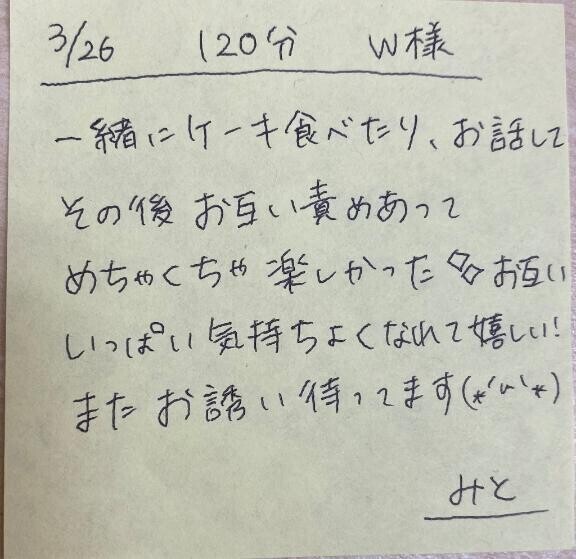 3/26 120分 W様
一緒にケーキ食べたり、お話して
その後 お互い責めあって
めちゃくちゃ楽しかった お互い
いっぱい気持ちよくなれて嬉しい!
また お誘い待ってます(*'ω'*)
みと